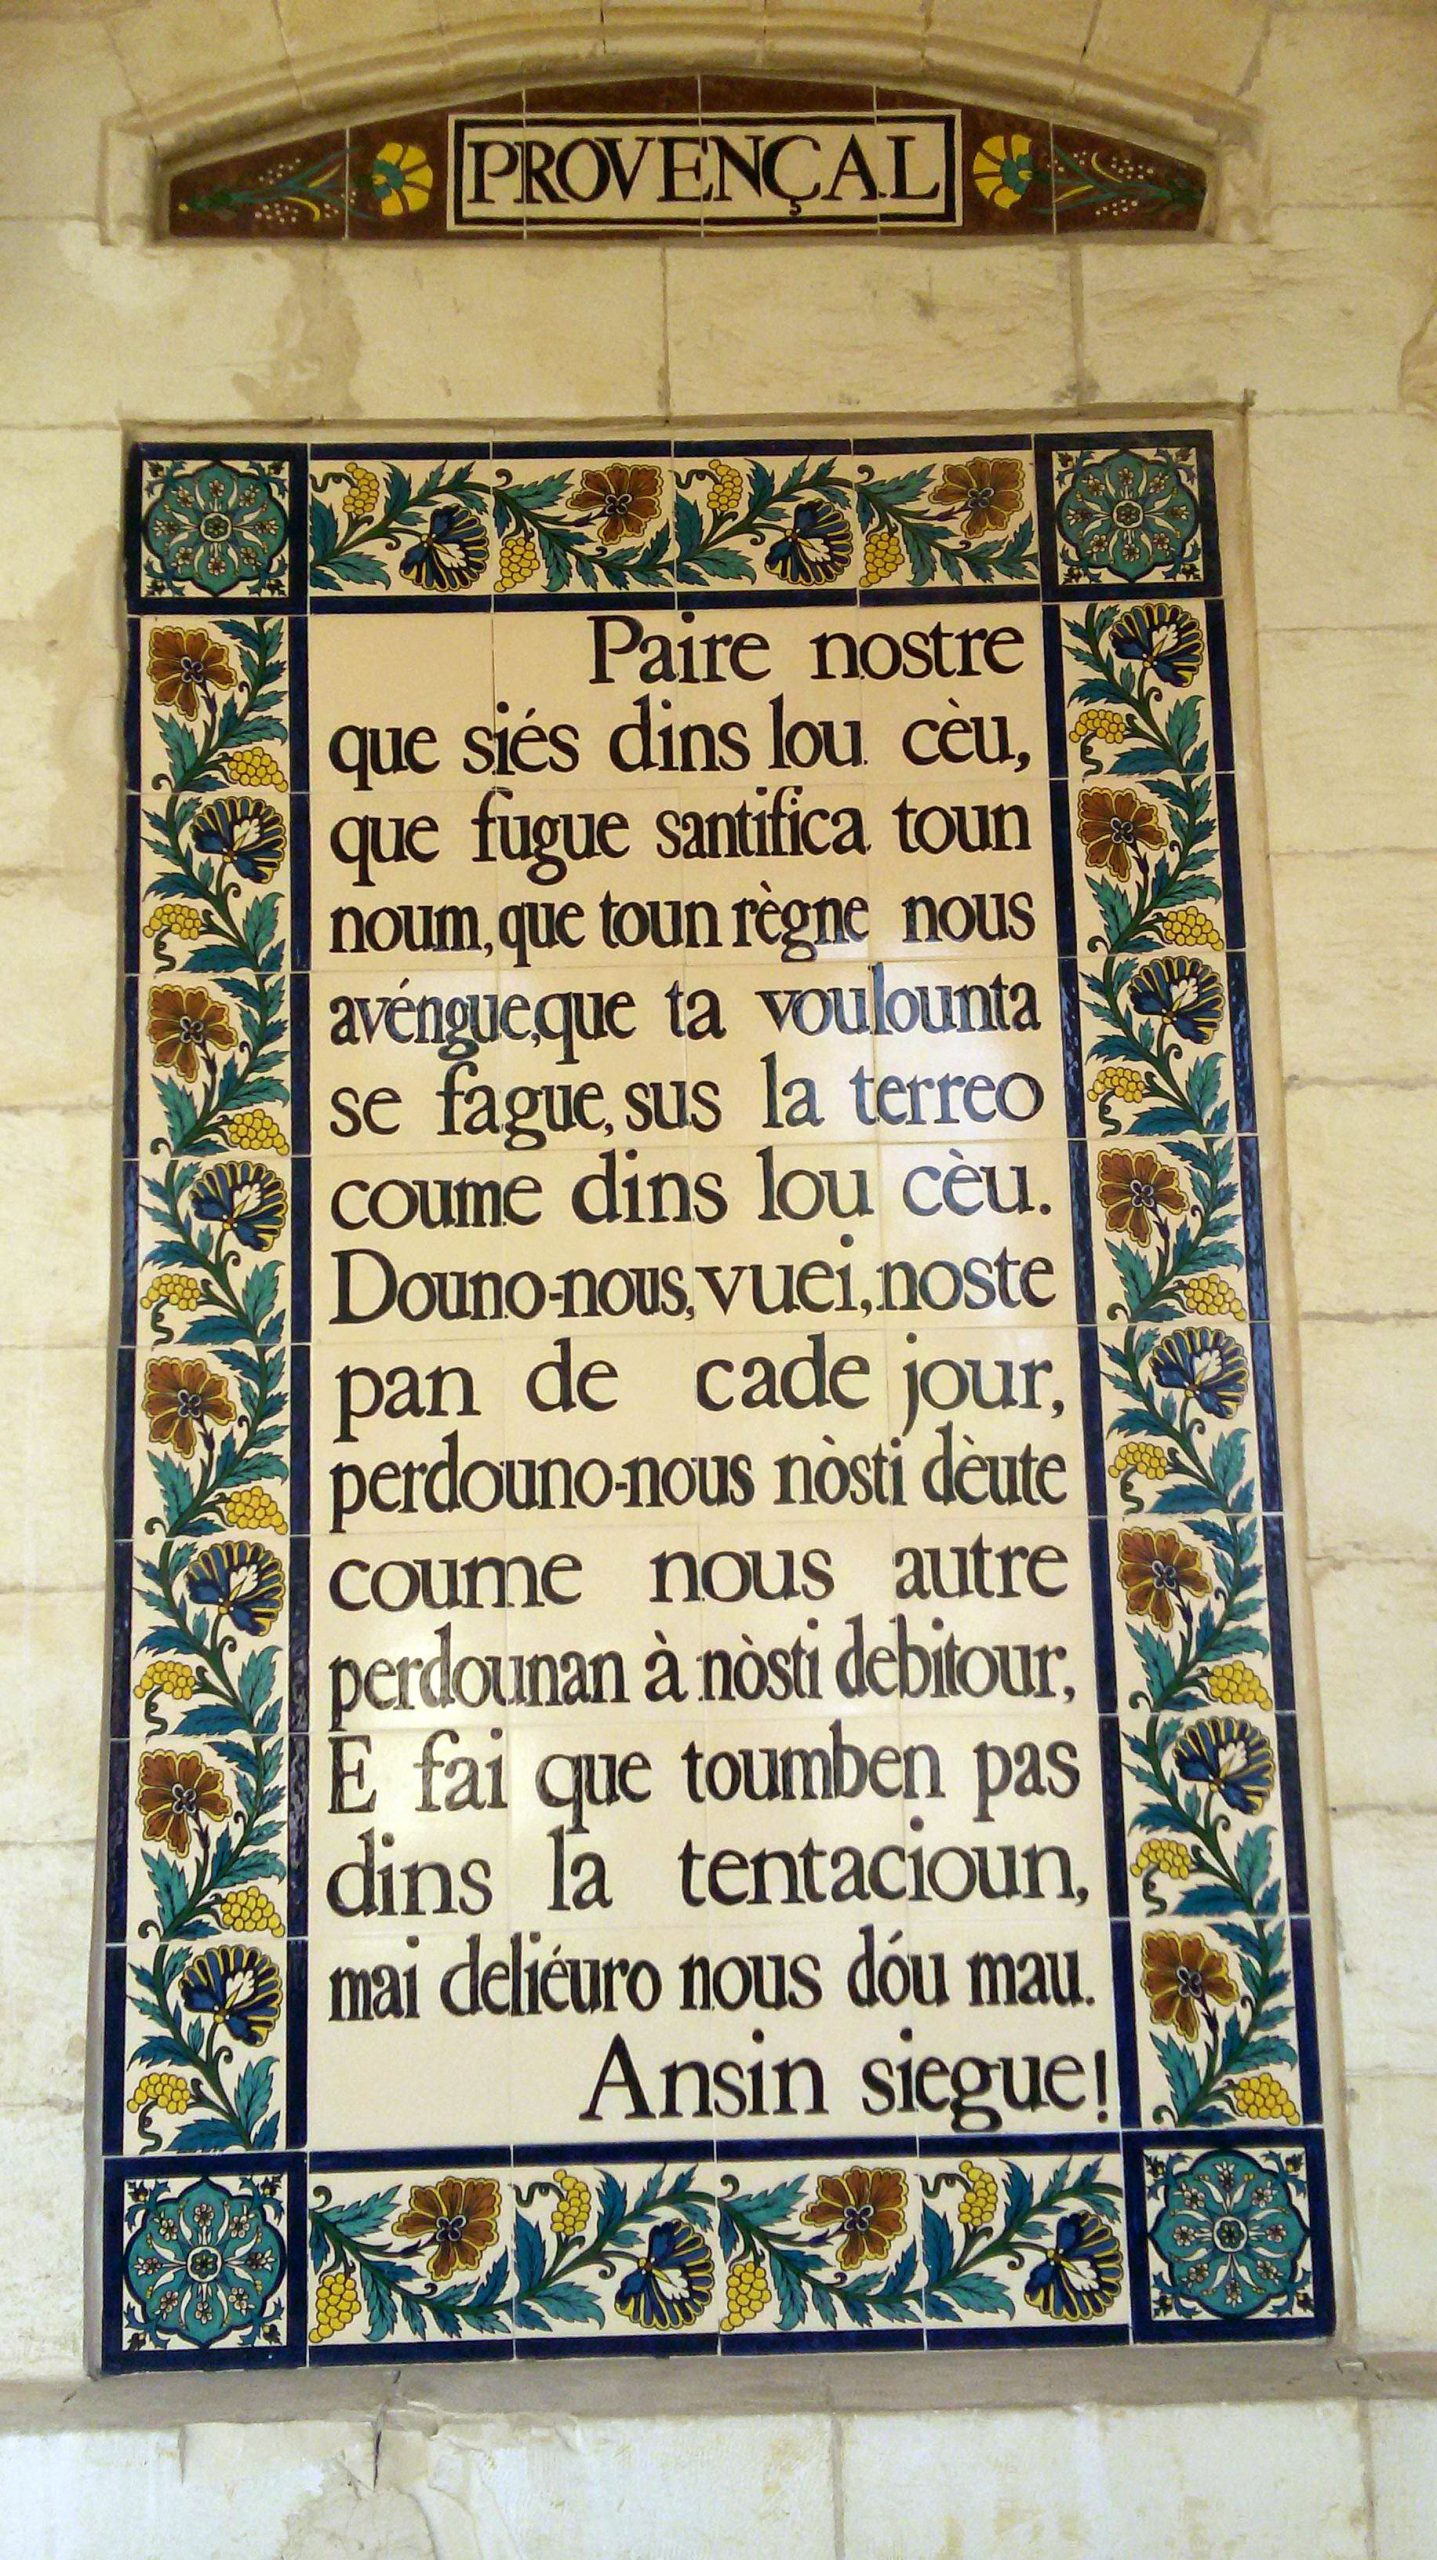 PROVENÇAL
Paire nostre
que siés dins lou cèu,
que fugue santifica toun
noum, que toun règne nous
avéngue,que ta voulounta
se fague, sus la terreo
coume dins lou cèu.
Douno-nous, vuei, noste
pan de cade jour,
perdouno-nous nòsti dèute
coume nous autre
perdounan à nòsti debitour,
E fai que toumben pas
dins la tentacioun,
mai deliéuro nous dóu mau.
Ansin siegue!